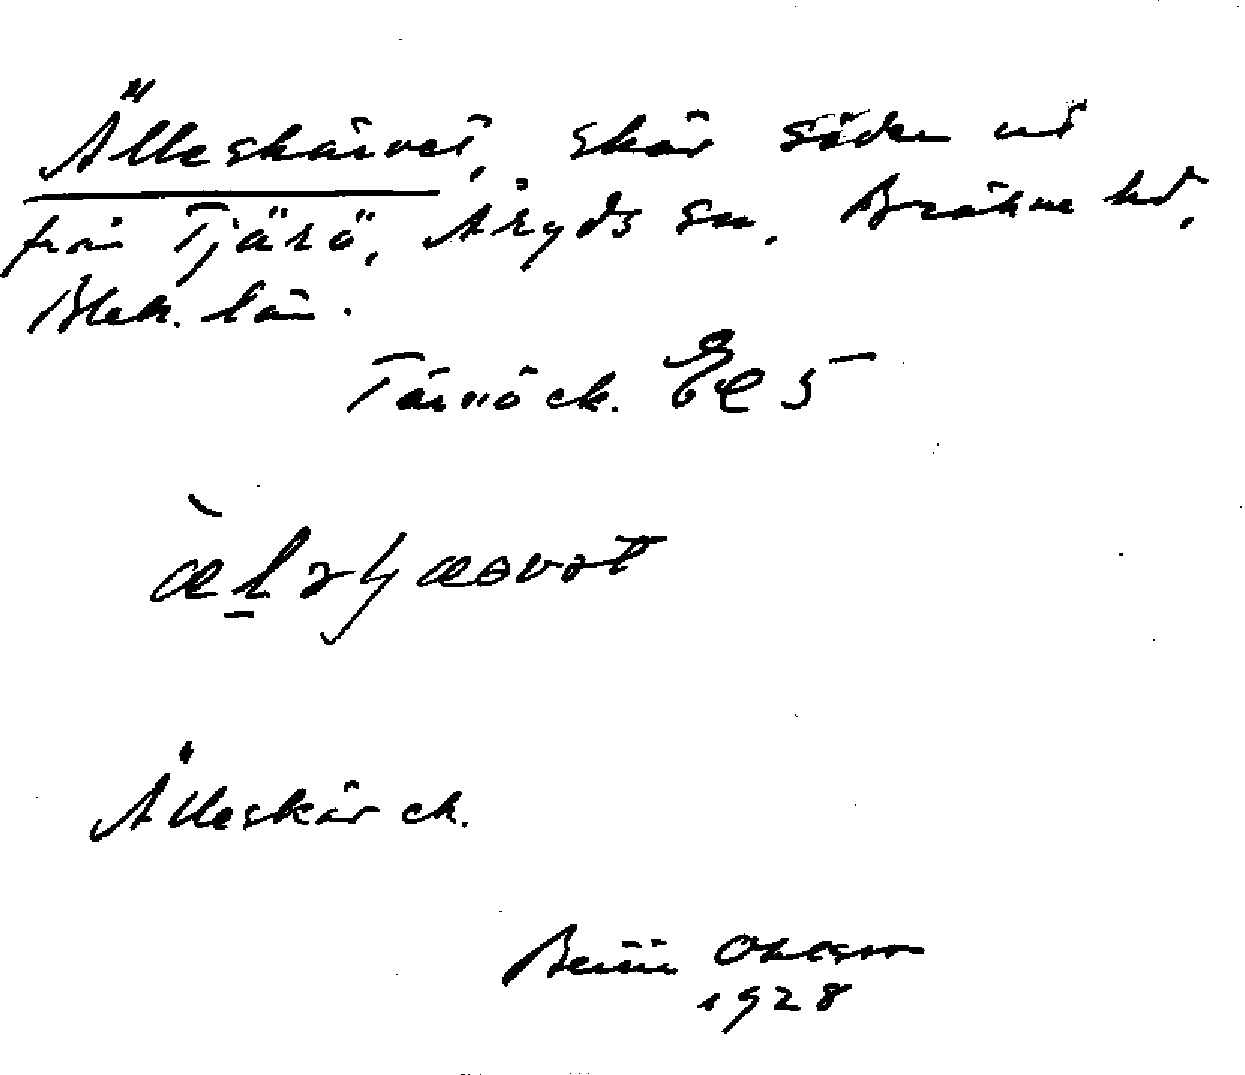 Älleskärvet, skär söder ut
från Tjärö, Åryds sn, Bräkne hd,
Blek. län.
Tärnö ek. 5
Älleskär ek.
Bertil Ohlsson
1928